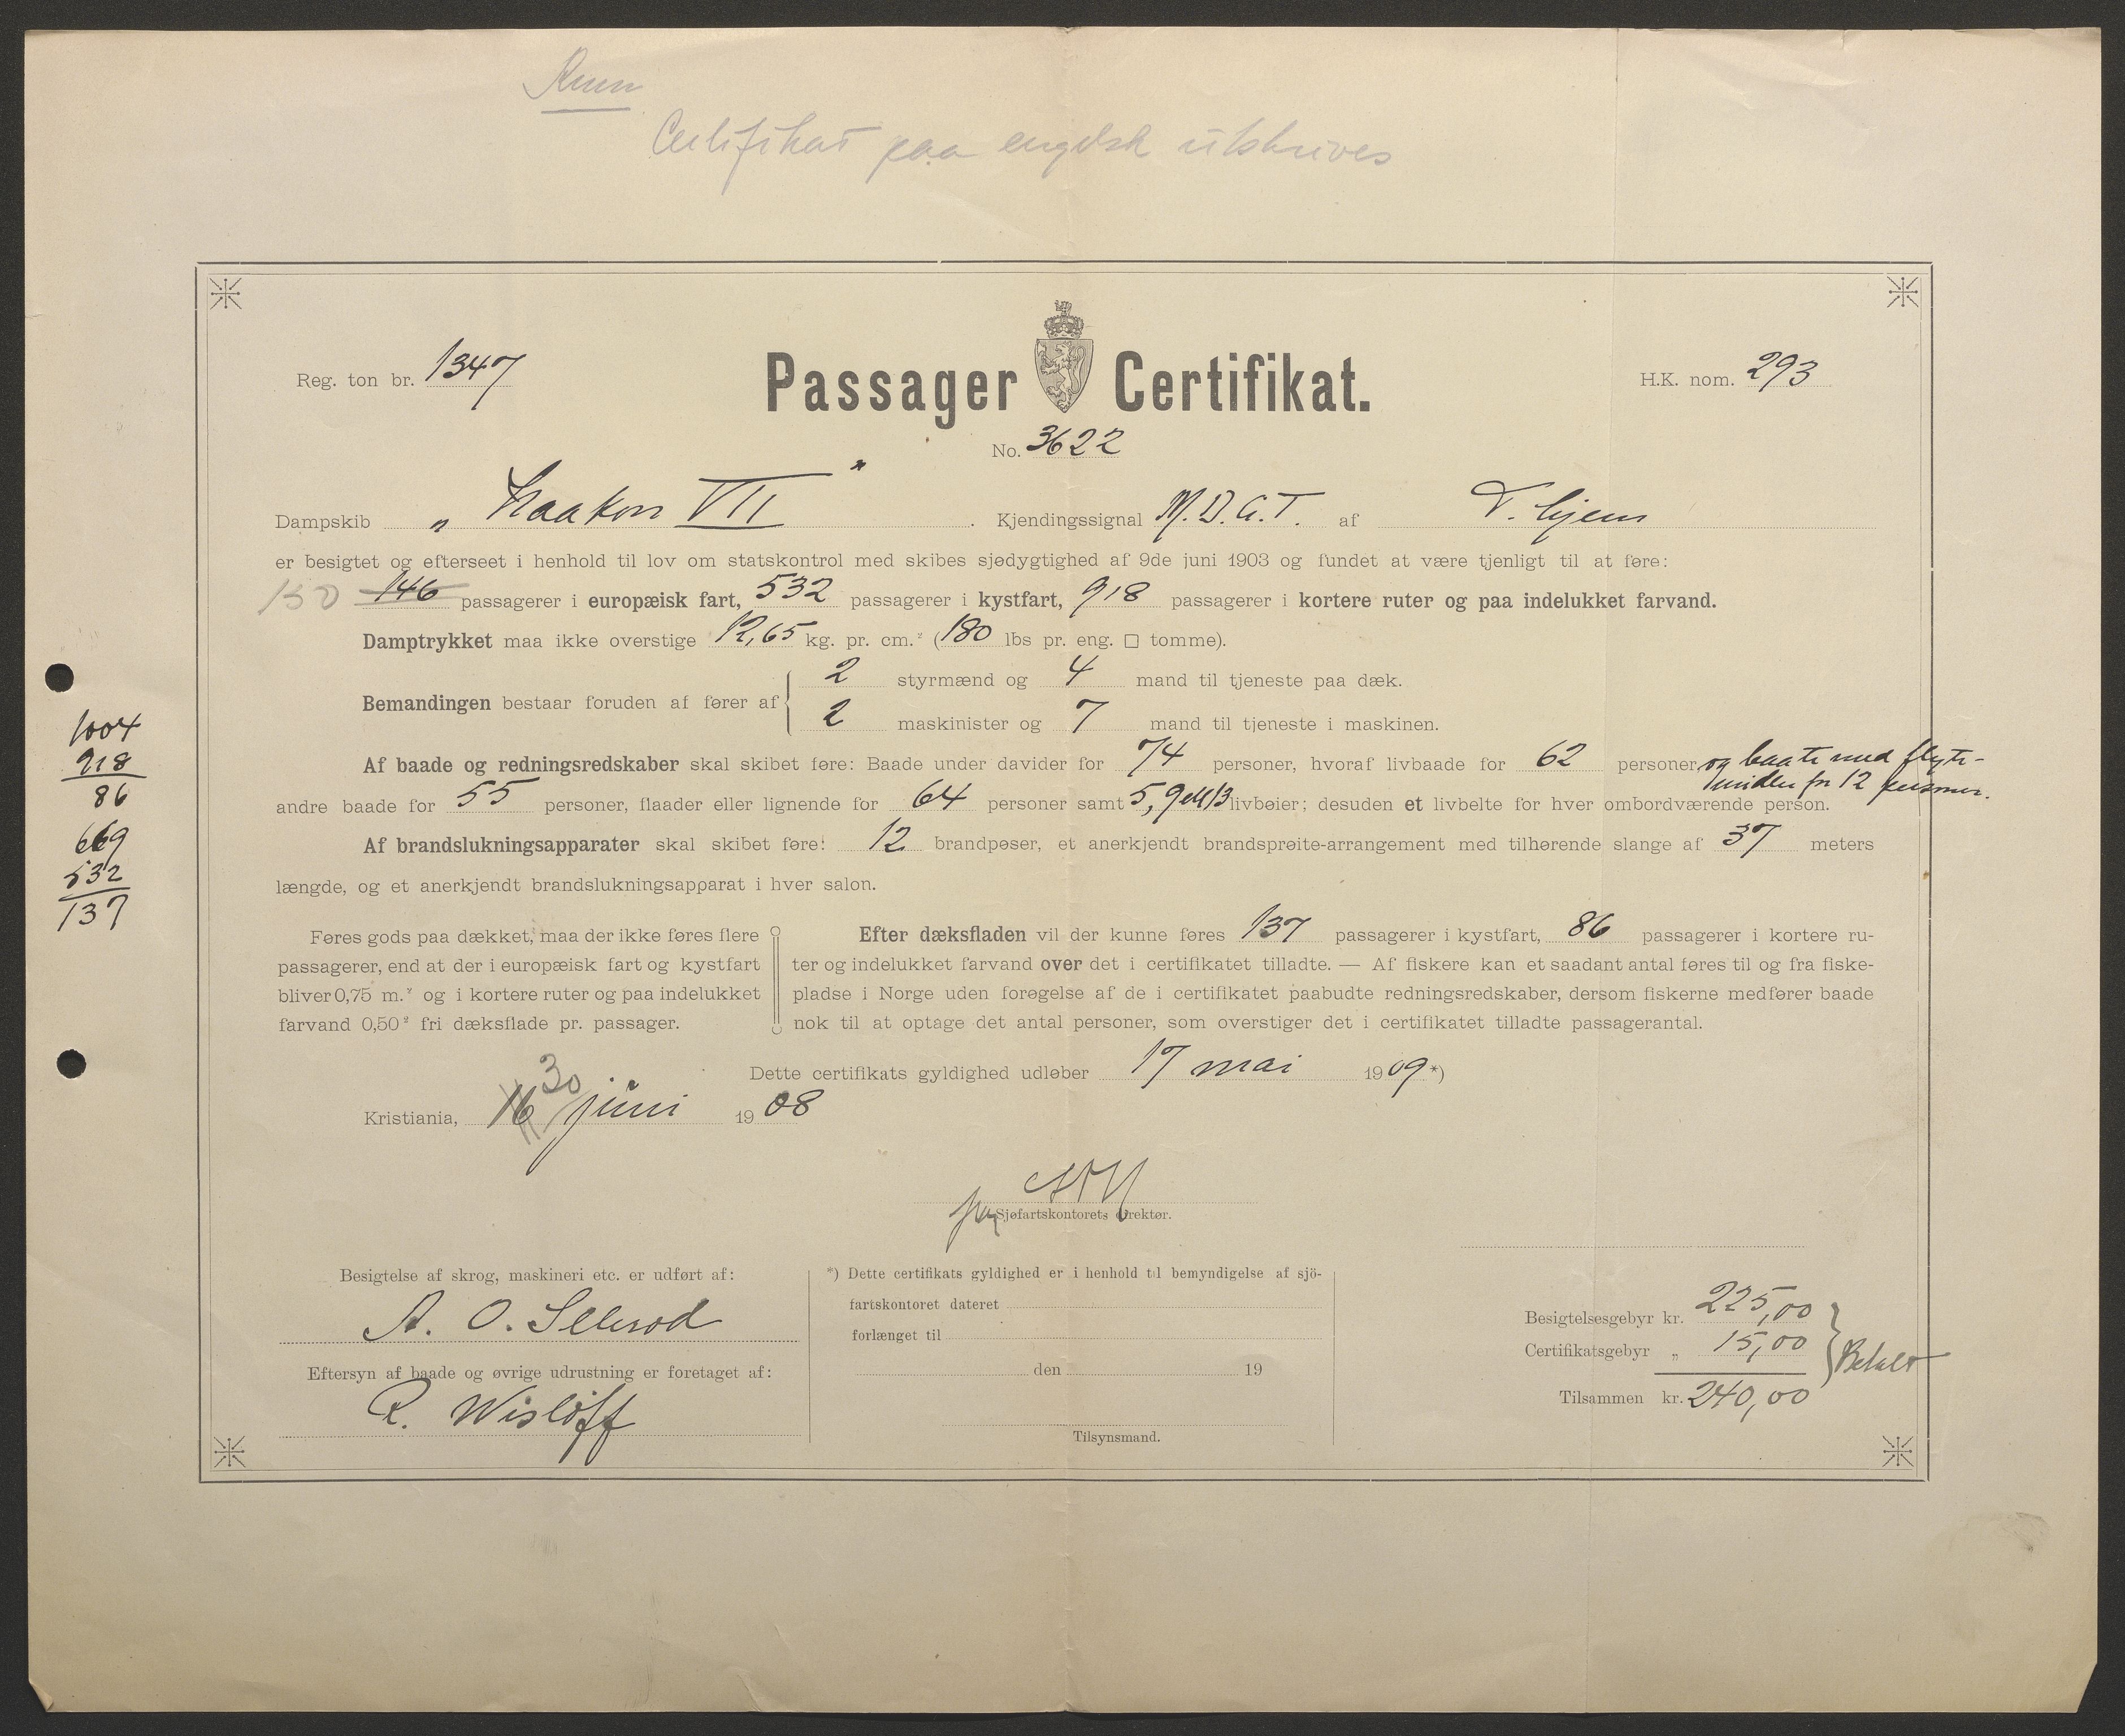 Certifikat paa engelsk utskrives
Reg. ton br. 1347
Passager Certifikat.
H.K. nom. 293
No. 3622
Dampskib „Haakon VII" . Kjendingssignal M.D.G.T. af T.hjem
er besigtet og efterseet i henhold til lov om statskontrol med skibes sjødygtighed af 9de juni 1903 og fundet at være tjenligt til at føre:
150 146 passagerer i europæisk fart, 532 passagerer i kystfart, 918 passagerer i kortere ruter og paa indelukket farvand.
Damptrykket maa ikke overstige 12,65 kg. pr. cm.² (180 lbs pr. eng. □ tomme).
Bemandingen bestaar foruden af fører af
2 styrmænd og 4 mand til tjeneste paa dæk.
2 maskinister og 7 mand til tjeneste i maskinen.
1004
918
86
669
532
137
Af baade og redningsredskaber skal skibet føre: Baade under davider for 74 personer, hvoraf livbaade for 62 personer, og baate med flyte-
midler for 12 personer.
andre baade for 55 personer, flaader eller lignende for 64 personer samt 5, 9 ell 13 livbøier; desuden et livbelte for hver ombordværende person.
Af brandslukningsapparater skal skibet føre: 12 brandpøser, et anerkjendt brandsprøite-arrangement med tilhørende slange af 37 meters
længde, og et anerkjendt brandslukningsapparat i hver salon.
Føres gods paa dækket, maa der ikke føres flere
passagerer, end at der i europæisk fart og kystfart
bliver 0,75 m.² og i kortere ruter og paa indelukket
farvand 0,50² fri dæksflade pr. passager.
Efter dæksfladen vil der kunne føres 137 passagerer i kystfart, 86 passagerer i kortere ru-
ter og indelukket farvand over det i certifikatet tilladte. — Af fiskere kan et saadant antal føres til og fra fiske-
pladse i Norge uden forøgelse af de i certifikatet paabudte redningsredskaber, dersom fiskerne medfører baade
nok til at optage det antal personer, som overstiger det i certifikatet tilladte passagerantal.
Dette certifikats gyldighed udløber 17 mai 1909 *)
Kristiania, 16 30 juni 1908
Sjøfartskontorets direktør.
Besigtelse af skrog, maskineri etc. er udført af:
A. O. Sllerød
Eftersyn af baade og øvrige udrustning er foretaget af:
R. Wisløff
*) Dette certifikats gyldighed er i henhold til bemyndigelse af sjö-
fartskontoret dateret
forlænget til
den 19
Tilsynsmand.
Besigtelsesgebyr kr. 225,00
Certifikatsgebyr „ 15,00
Betalt
Tilsammen kr. 240,00